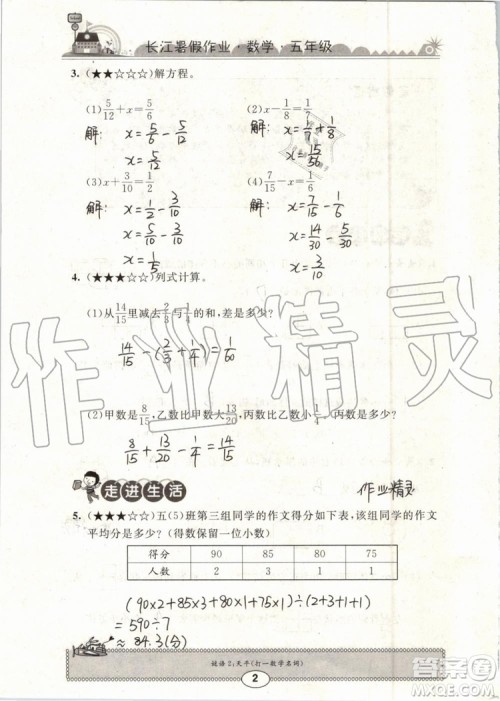 长江暑假作业 数学 五年级
3. (★★☆☆☆)解方程。
(1) 5/12 + x = 5/6 (2) x − 1/8 = 1/7
解: x = 5/6 − 5/12 解: x = 1/7 + 1/8
x = 5/12 x = 15/56
(3) x + 3/10 = 1/2 (4) 7/15 − x = 1/6
解: x = 1/2 − 3/10 解: x = 7/15 − 1/6
x = 5/10 − 3/10 x = 14/30 − 5/30
x = 1/5 x = 3/10
4. (★★★☆☆)列式计算。
(1)从14/15里减去2/3与1/4的和,差是多少?
14/15 − (2/3 + 1/4) = 1/60
(2)甲数是8/15,乙数比甲数大13/20,丙数比乙数小1/4,丙数是多少?
8/15 + 13/20 − 1/4 = 14/15
走进生活
作业精灵
5. (★★★☆☆)五(5)班第三组同学的作文得分如下表,该组同学的作文
平均分是多少?(得数保留一位小数)
得分 90 85 80 75
人数 2 3 1 1
(90×2+85×3+80×1+75×1)÷(2+3+1+1)
=590÷7
≈84.3(分)
谜语2:天平(打一数学名词)
2
作业精灵
答案圈